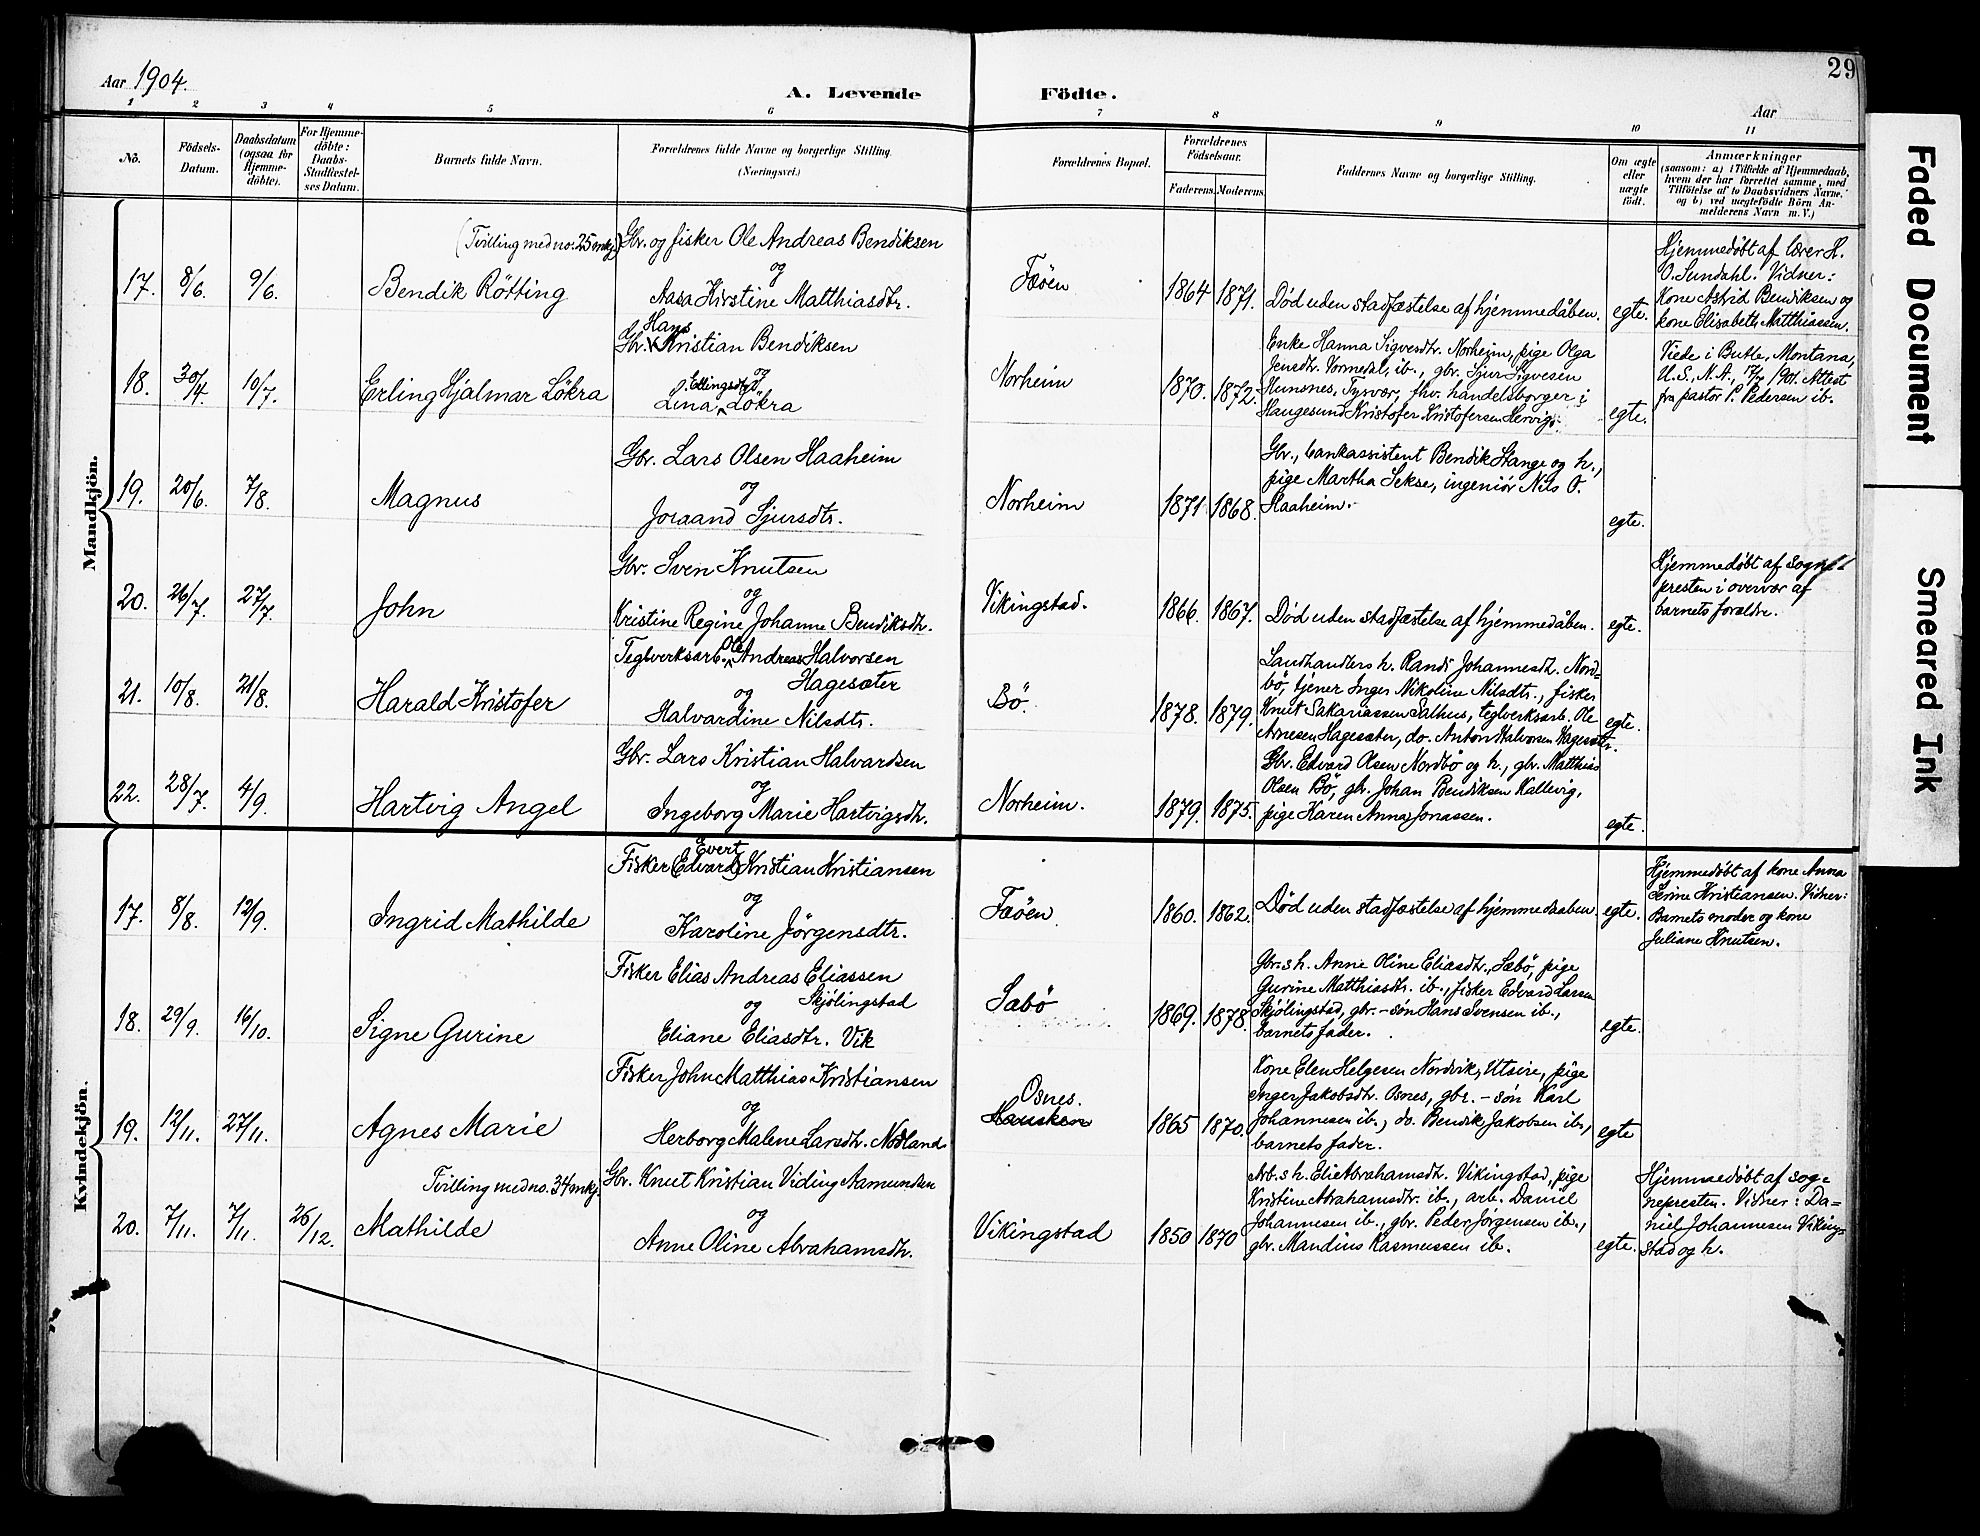 29
Aar 1904.
A. Levende Födte.
Aar
1 2 3 4 5 6 7 8 9 10 11
No.
Födsels-Datum.
Daabsdatum (ogsaa for Hjemme-döbte).
For Hjemme-döbte: Daabs-Stadfæstel-ses Datum.
Barnets fulde Navn.
Forældrenes fulde Navne og borgerlige Stilling.
(Næringsvei.)
Forældrenes Bopæl.
Forældrenes Födselsaar.
Faderens. Moderens.
Faddernes Navne og borgerlige Stilling.
Om ægte eller uægte født.
Anmærkninger
(saasom: a) i Tilfælde af Hjemmedaab,
hvem der har forrettet samme, med
Tilföielse af to Daabsvidners Navne,
og b) ved uægtefödte Börn An-
melderens Navn m. V.)
Mandkjön.
(Tvilling med no. 25 mkj.)
17. 8/6. 9/6. Bendik Rötting
Gbr. og fisker Ole Andreas Bendiksen
og
Aasa Kirstine Matthiasdtr.
Fæöen 1864 1871. Död uden stadfæstelse af hjemmedåben. egte.
Hjemmedöbt af lærer H.
O. Sundahl. Vidner:
Kone Astrid Bendiksen og
kone Elisabeth Matthiassen.
18. 30/4. 10/7. Erling Hjalmar Lökra
Gbr. Hans Kristian Bendiksen
og
Lina Ellingsdtr. Lökra
Norheim 1870. 1872.
Enke Hanna Sigvesdtr. Norheim, pige Olga
Jensdtr. Vormedal, ib., gbr. Sjur Sigvesen
Hunsnes, Tysvær, fhv. handelsborger i
Haugesund Kristofer Kristofersen Hervig.
egte.
Viede i Butte, Montana,
U.S., N.A., 17/7 1901. Attest
fra pastor P. Pedersen ib.
19. 20/6. 7/8. Magnus
Gbr. Lars Olsen Haaheim
og
Joraand Sjursdtr.
Norheim 1871 1868.
Gbr., bankassistent Bendik Stange og h.,
pige Martha Sekse, ingeniör Nils O.
Haaheim.
egte.
20. 26/7. 27/7. John
Gbr. Sven Knutsen
og
Kristine Regine Johanne Bendiksdtr.
Vikingstad. 1866. 1867. Död uden stadfæstelse af hjemmedåben. egte.
Hjemmedöbt af sogne-
presten i overvær af
barnets forældre.
21. 10/8. 21/8. Harald Kristofer
Teglverksarb. Ole Andreas Halvorsen
Hagesæter
og
Halvardine Nilsdtr.
Bö. 1878. 1879.
Landhandlers h. Randi Johannesdtr. Nord-
bö, tjener Inger Nikoline Nilsdtr., fisker
Knut Sakariassen Salhus, teglverksarb. Ole
Arnesen Hagesæter, do. Anton Halvorsen Hagesæter.
egte.
22. 28/7. 4/9. Hartvig Angel
Gbr. Lars Kristian Halvardsen
og
Ingeborg Marie Hartvigsdtr.
Norheim. 1879. 1875.
Gbr. Edvard Olsen Nordbö og h., gbr. Matthias
Olsen Bö, gbr. Johan Bendiksen Kallevig,
pige Karen Anna Jonassen.
egte.
Kvindekjön.
17. 8/8. 12/9. Ingrid Mathilde
Fisker (Edvard) Evert Kristian Kristiansen
og
Karoline Jörgensdtr.
Fæöen. 1860. 1862. Död uden stadfæstelse af hjemmedaaben. egte.
Hjemmedöbt af kone Anna
Serine Kristiansen. Vidner:
Barnets moder og kone
Juliane Knutsen.
18. 29/9. 16/10. Signe Gurine
Fisker Elias Andreas Eliassen
Skjölingstad
og
Eliane Eliasdtr. Vik
Sabö 1869. 1878.
Gbr.s h. Anne Oline Eliasdtr., Sæbö, pige
Gurine Matthiasdtr. ib., fisker Edvard Larsen
Skjölingstad, gbr.-sön Hans Svensen ib.,
barnets fader.
egte.
19. 12/11. 27/11. Agnes Marie
Fisker John Matthias Kristiansen
og
Herborg Malene Larsdtr. Nordland
Osnes.
Hausken 1865 1870.
Kone Elen Helgesen Nordvik, Utsire, pige
Inger Jakobsdtr. Osnes, gbr.-sön Karl
Johannesen ib., do. Bendik Jakobsen ib.,
barnets fader.
egte
Tvilling med no. 34 mkj.
20. 7/11. 7/11. 26/12. Mathilde
Gbr. Knut Kristian Viding Aamundsen
og
Anne Oline Abrahamsdtr.
Vikingstad 1850 1870
Arb.s h. Elie Abrahamsdtr. Vikingstad, pige
Kristine Abrahamsdtr. ib., arb. Daniel
Johannesen ib., gbr. Peder Jörgensen ib.,
gbr. Mandius Rasmussen ib.
egte.
Hjemmedöbt af sog-
nepresten. Vidner: Da-
niel Johannesen Viking-
stad og h.
Faded Document
Smeared Ink